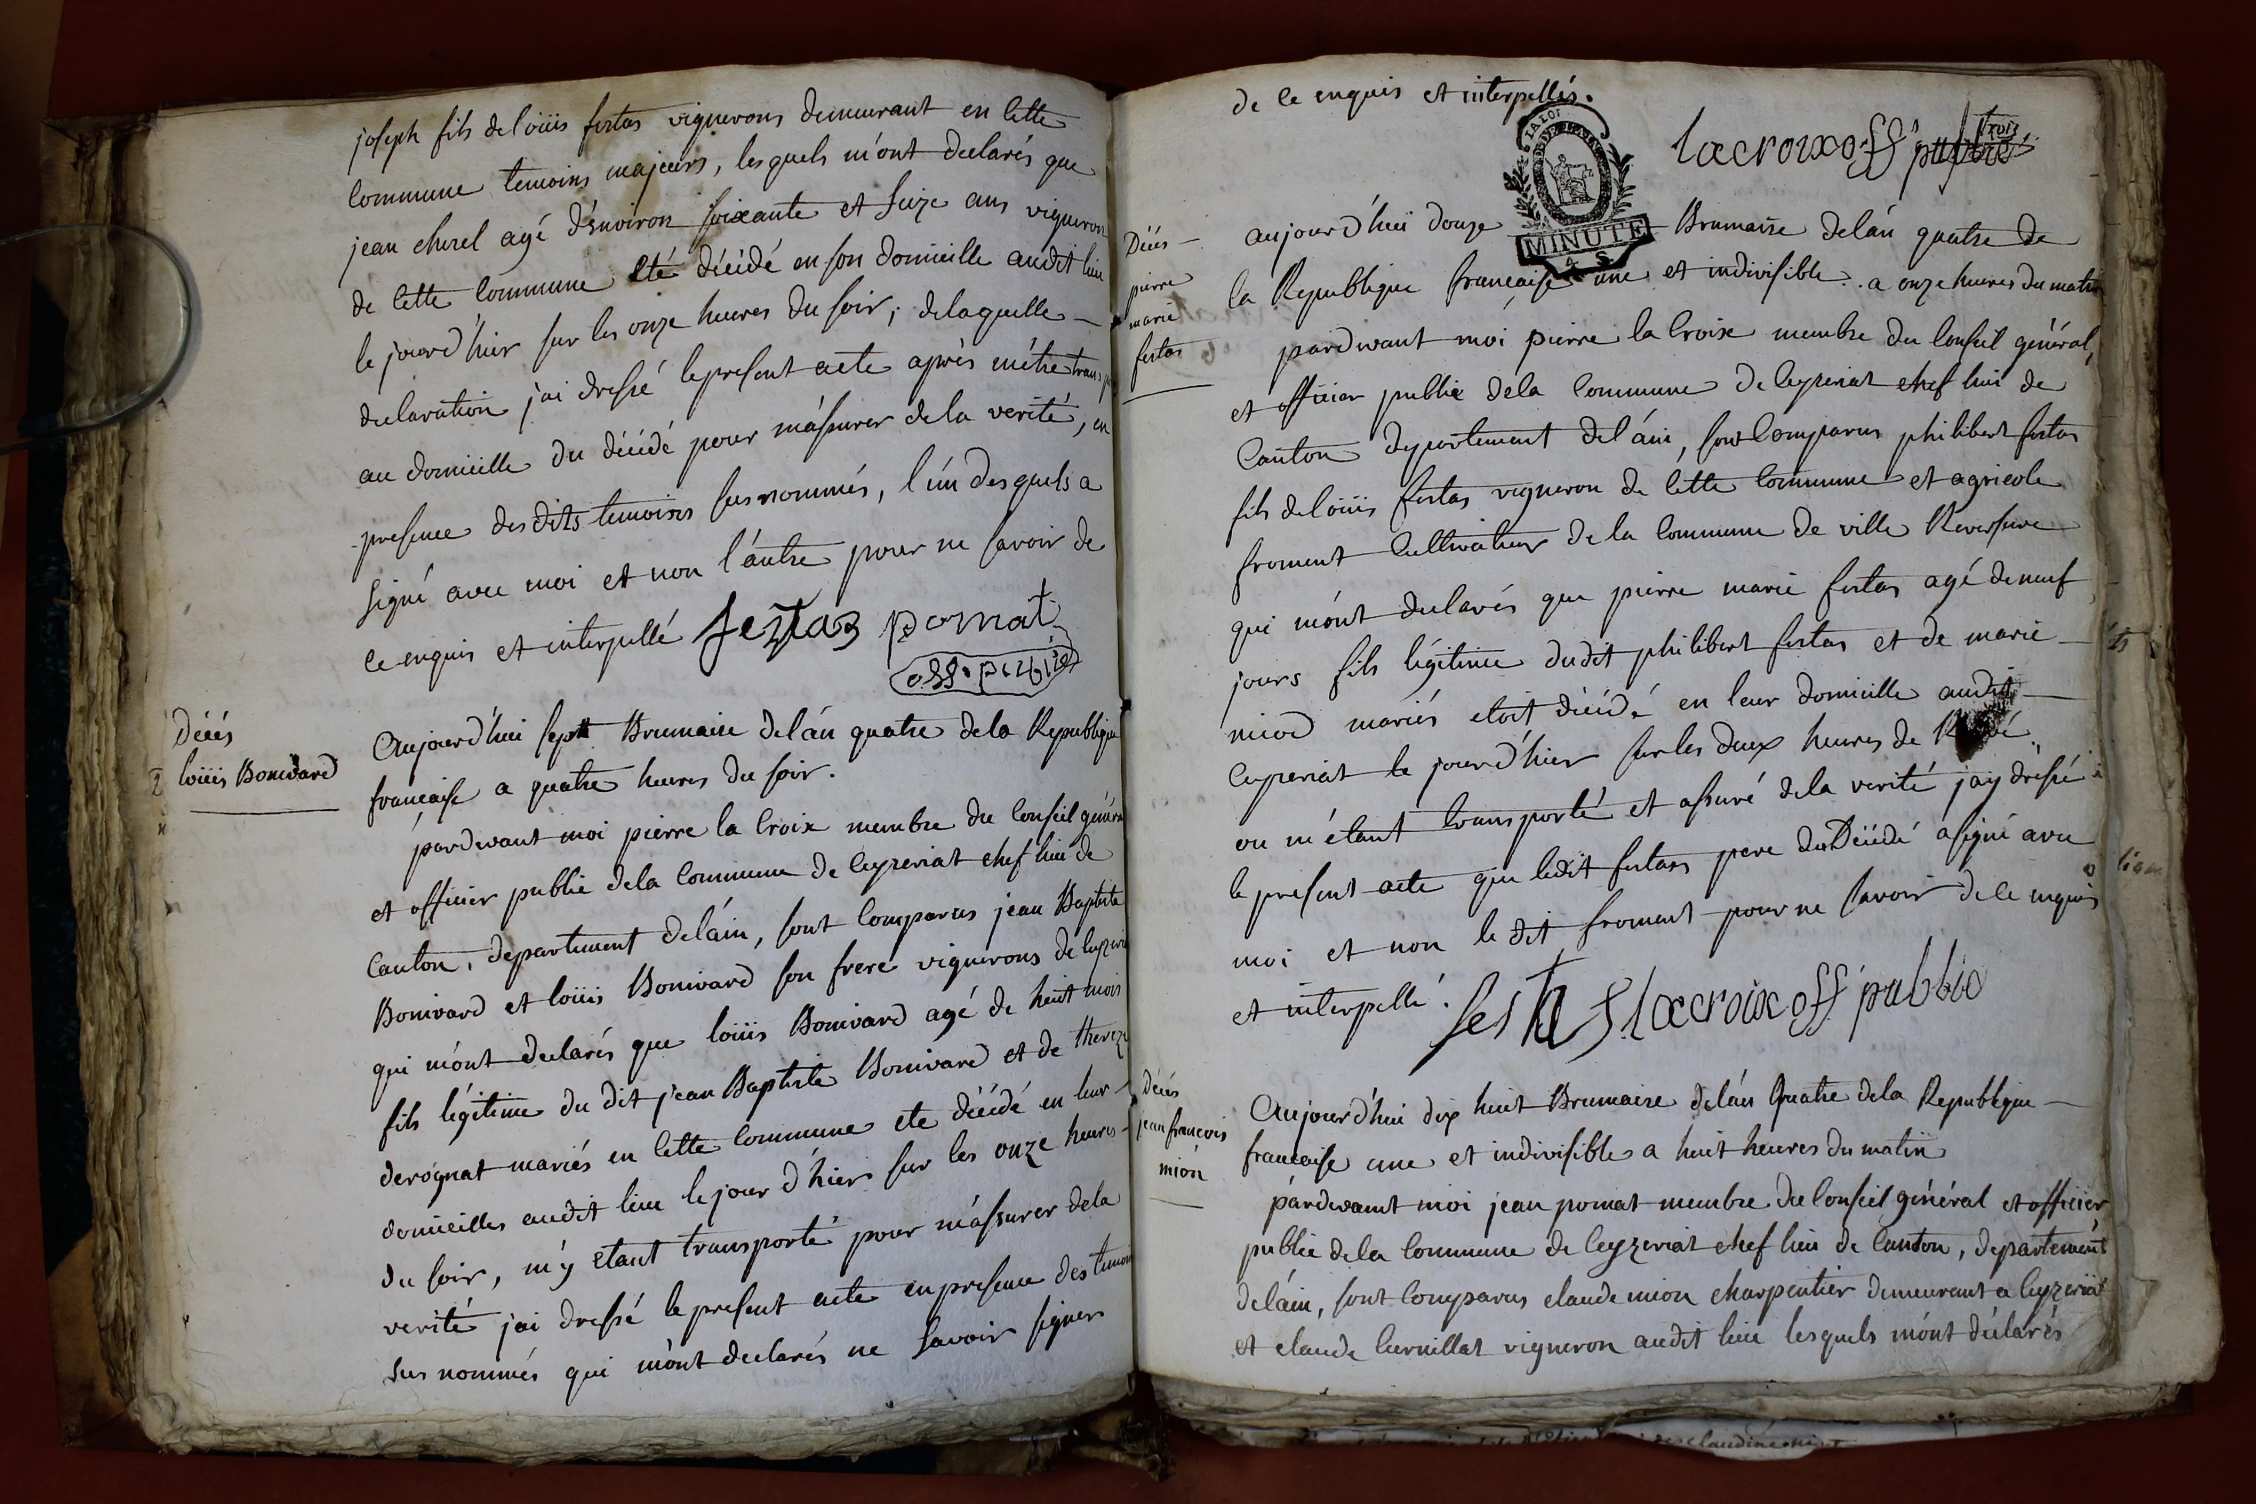 joseph fils de loüis festas vignerons demeurant en cette
commune temoins majeurs, lesquels m'ont declarés que
jean cherel agé d'environ soixante et seize ans vigneron
de cette commune eté décédé en son domicille audit lieu
le jourd'hier sur les onze heures du soir; de laquelle
declaration j'ai dressé le present acte après m'être transp
au domicille du décédé pour m'assurer de la verité, en
presence des dits temoins sus nommés, l'un des quels a
signé avec moi et non l'autre pour ne savoir de
ce enquis et interpellé festas pomat
off. public
Décés
loüis Bonivard
Aujourd'hui sept Brumaire de l'án quatre de la Republique
française a quatre heures du soir.
pardevant moi pierre la Croix membre du Conseil généra
et officier public de la Commune de Ceyzeriat chef lieu de
Canton, departement de l'áin, sont Comparus jean Baptiste
Bonivard et loüis Bonivard son frere vignerons de Ceyzeri
qui m'ont declarés que loüis Bonivard agé de huit mois
fils légitime du dit jean Baptiste Bonivard et de thereze
derognat mariés en cette commune ete décédé en leur
domicilles audit lieu le jour d'hier sur les onze heures
du soir, m'y etant transporté pour m'assurer de la
verité j'ai dressé le present acte en presence des temoins
sus nommés qui m'ont declarés ne savoir signer
de ce enquis et interpellés.
lacroix off public
LA LOI
MINUTE
4 S
Décés
pierre
marie
festas
aujourd'hui douze Brumaire de l'án quatre de
la Republique française une et indivisible. a onze heures du matin
pardevant moi pierre la Croix membre du Conseil général,
et officier public de la Commune de Ceyzeriat chef lieu de
Canton departement de l'áin, sont Comparus philibert festas
fils de loüis festas vigneron de cette Commune et agricole
froment Cultivateur de la Commune de ville Reversure
qui m'ont declarés que pierre marie festas agé de neuf
jours fils légitime dudit philibert festas et de marie
niod mariés etoit décédé en leur domicille audit
Ceyzeriat le jour d'hier sur les deux heures de
ou m'étant transporté et assuré de la verité j'ay dressé
le present acte que ledit festas pere du Décédé a signé avec
moi et non le dit froment pour ne savoir de ce enquis
et interpellé. festas lacroix off public
Décés
jean francois
mion
Aujourd'hui dix huit Brumaire de l'án Quatre de la Republique
francaise une et indivisible a huit heures du matin
pardevant moi jean pomat membre du Conseil général et officier
public de la Commune de Ceyzeriat chef lieu de Canton, departement
de l'áin, sont Comparus claude mion charpentier demeurant a Ceyzeriat
et claude Curnillat vigneron audit lieu lesquels m'ont déclarés